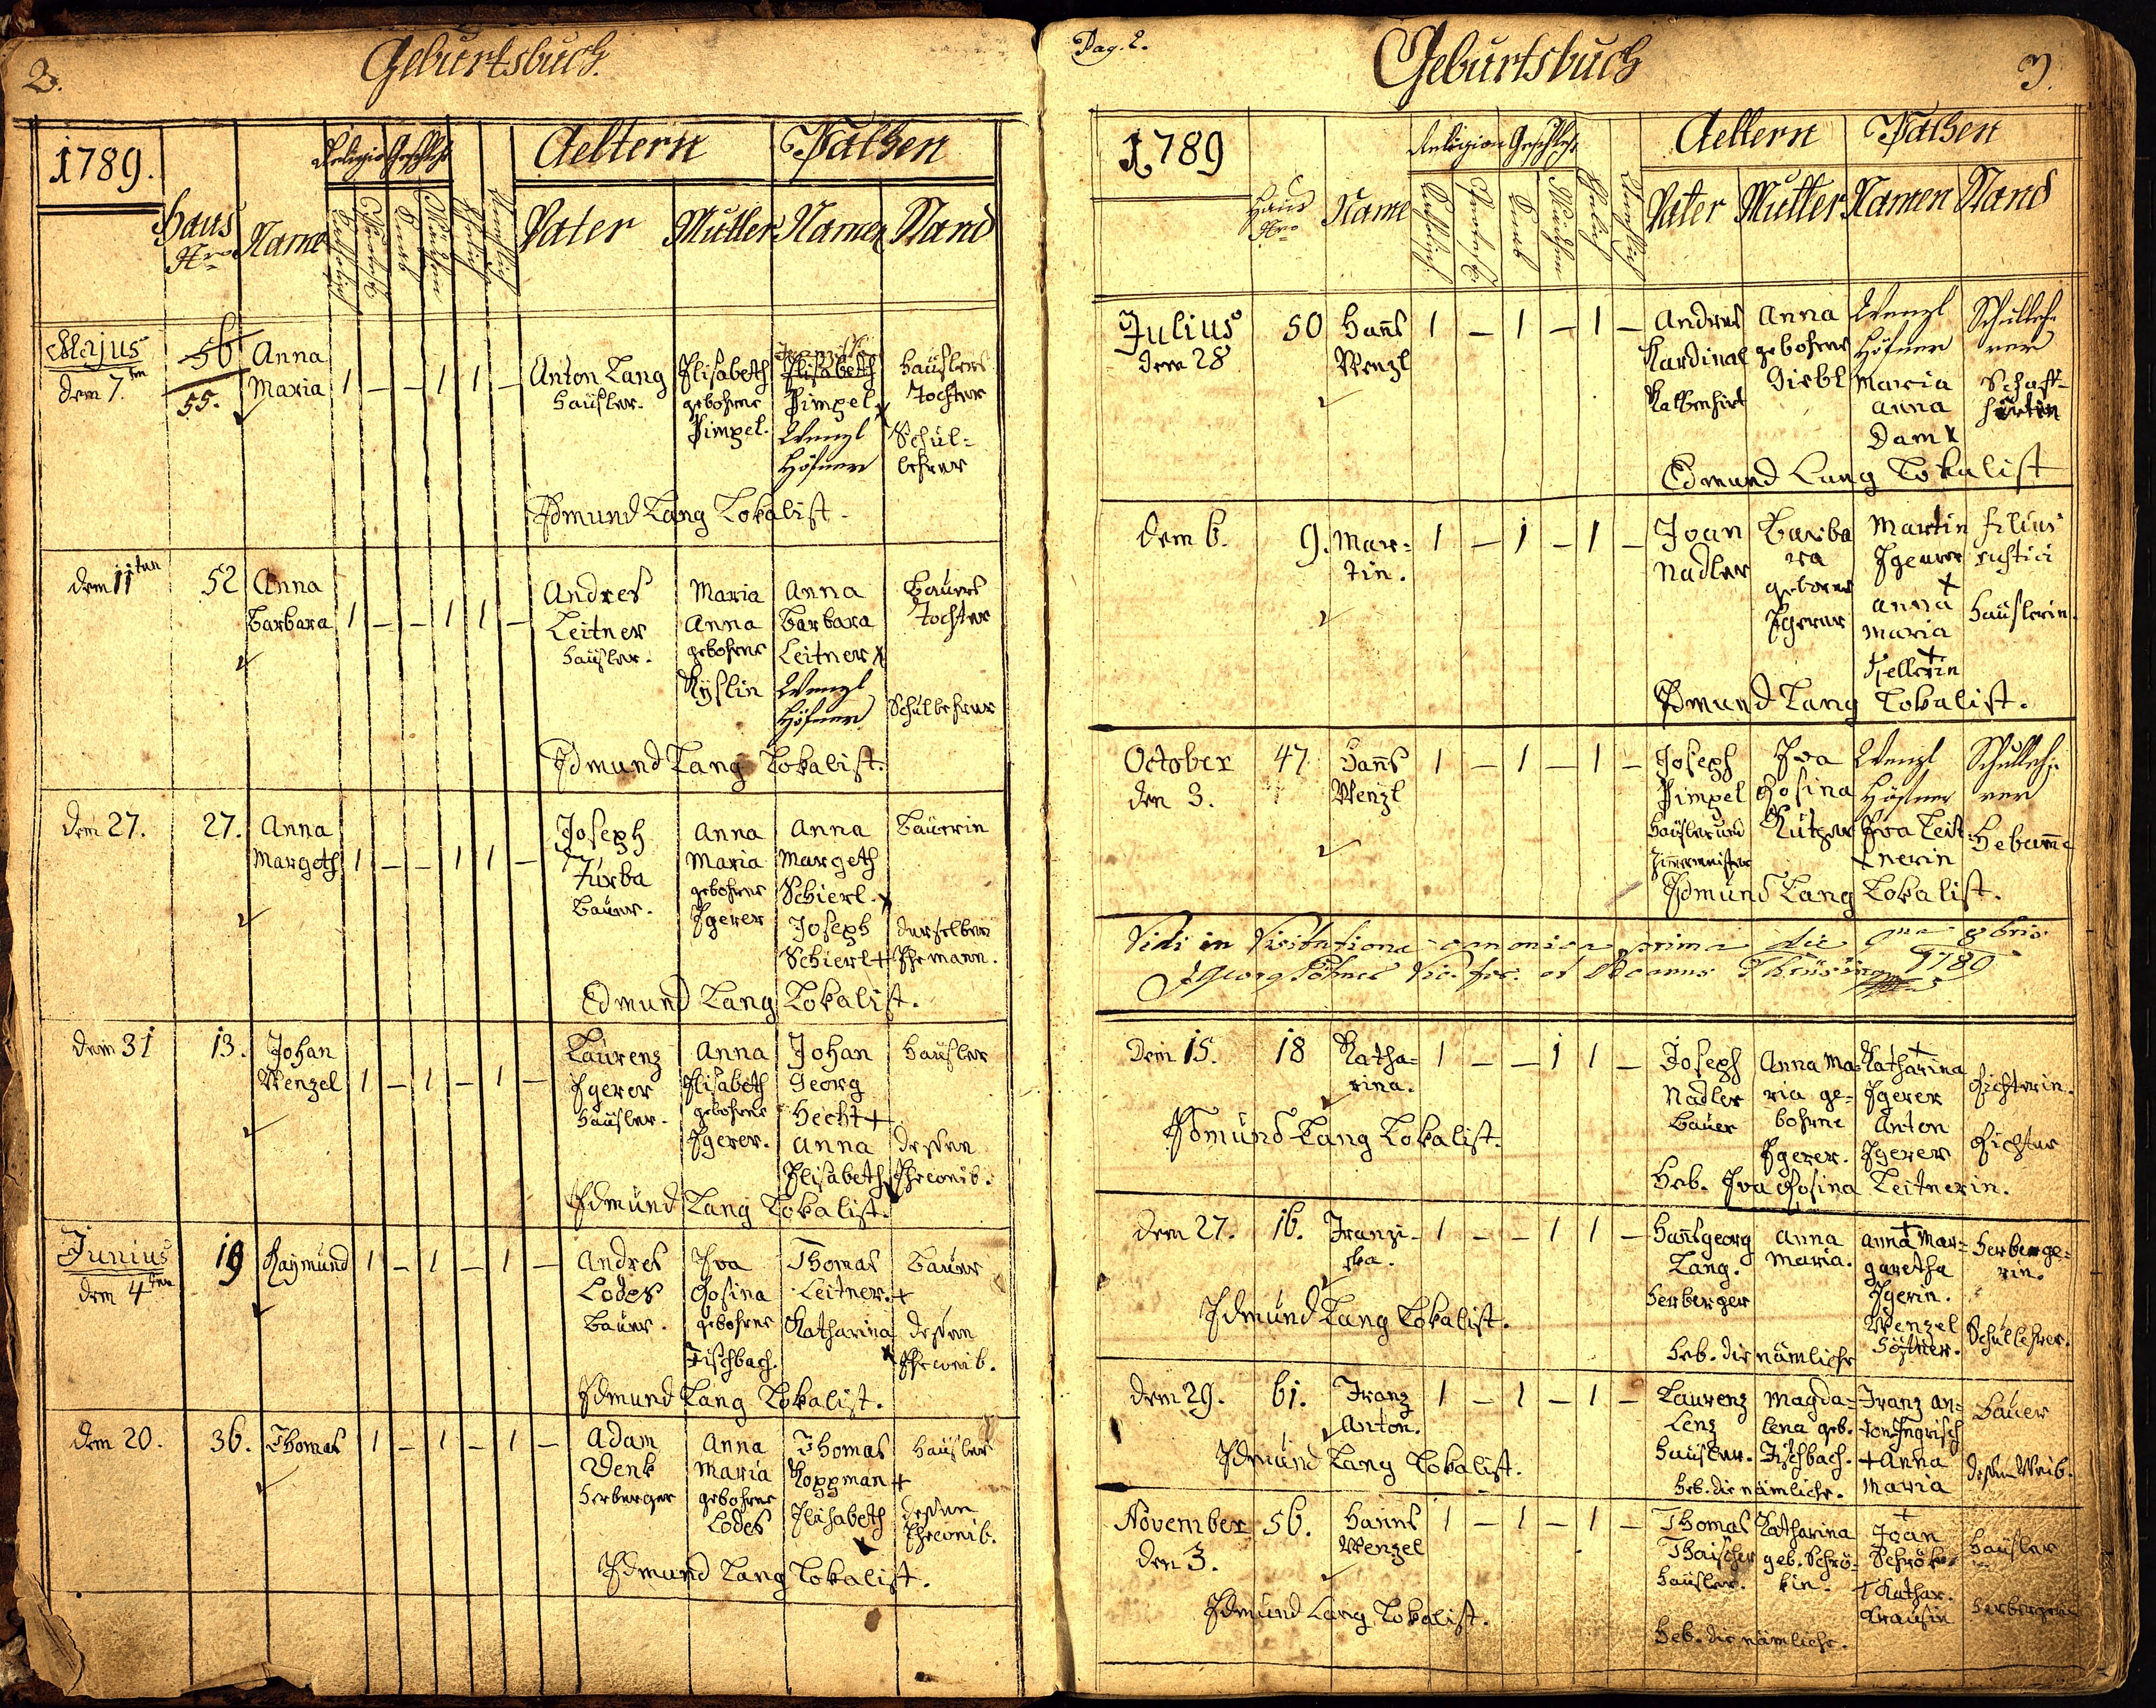 2.
Geburtsbuch.
1789.
Haus Nro
Name
Religion
Geschlecht
Katholisch
Protest.
Knab
Mädchen
Ehelich
Unehelich
Aeltern
Pathen
Vater
Mutter
Namen
Stand
Majus
dem 7.ten
56
55.
Anna
Maria
1 – – 1 1 –
Anton Lang
Häusler.
Elisabeth
gebohrne
Pimpel.
Elisabeth
Pimpel x
Wenzl
Höfner
Häuslers
Tochter
Schul=
lehrer
Edmund Lang Lokalist.
dem 11ten
52
Anna
Barbara
1 – – 1 1 –
Andres
Leitner
Häusler.
Maria
Anna
gebohrne
Kyslin
Anna
Barbara
Leitner x
Wenzl
Höfner
Bauers
Tochter
Schullehrer
Edmund Lang Lokalist.
dem 27.
27.
Anna
Margeth
1 – – 1 1 –
Joseph
Turba
Bauer.
Anna
Maria
gebohrne
Egerer
Anna
Margeth
Schierl. x
Joseph
Schierl +
Bäuerin
derselben
Ehemann.
Edmund Lang Lokalist.
dem 31
13.
Johan
Wenzel
1 – 1 – 1 –
Laurenz
Egerer
Häusler.
Anna
Elisabeth
gebohrne
Egerer.
Johan
Georg
Hecht +
Anna
Elisabeth
Häusler
dessen
Eheweib.
Edmund Lang Lokalist.
Junius
dem 4ten
19
Raymund
1 – 1 – 1 –
Andres
Lodes
Bauer.
Eva
Rosina
gebohrne
Fischbach.
Thomas
Leitner. +
Katharina
x
Bauer
dessen
Eheweib.
Edmund Lang Lokalist.
dem 20.
36.
Thomas
1 – 1 – 1 –
Adam
Denk
Herberger
Anna
Maria
gebohrne
Lodes
Thomas
Koppman +
Elisabeth
Häusler
dessen
Eheweib.
Edmund Lang Lokalist.
Pag. 2.
Geburtsbuch
3.
1789
Haus Nro
Name
Religion
Geschlecht
Katholisch
Protest.
Knab
Mädchen
Ehelich
Unehelich
Aeltern
Pathen
Vater
Mutter
Namen
Stand
Julius
dem 28
50
Hanns
Wenzl
1 – 1 – 1 –
Andres
Kardinal
Kalbenhirt
Anna
gebohrne
Giebl
Wenzl
Höfner
Maria
Anna
Dam x
Schulleh=
rer
Schaff=
hirtin
Edmund Lang Lokalist
dem 6.
9.
Mar=
tin.
1 – 1 – 1 –
Joan
Nadler
Barba
ra
geborne
Egerer
Martin
Egerer
+
Anna
Maria
+
filius
rustici
Häuslerin.
Edmund Lang Lokalist.
October
den 3.
47
Hanns
Wenzl
1 – 1 – 1 –
Joseph
Pimpel
Häusler und
Zimermeister
Eva
Rosina
Wenzl
Höfner
Eva Leit
nerin
Schulleh=
rer
Hebamme
Edmund Lang Lokalist.
Vidi in Visitatione canonica prima die 9bris
1789
Dem 15.
18
Katha=
rina.
1 – – 1 1 –
Joseph
Nadler
Bauer
Anna Ma=
ria ge=
bohrne
Egerer.
+
Katharina
Egerer
Anton
Egerer
Richterin.
Richter
Edmund Lang Lokalist.
Heb. Eva Rosina Leitnerin.
dem 27.
16.
Franzi=
ska.
1 – – 1 1 –
Hannsgeorg
Lang.
Herberger
Anna
Maria.
+
Anna Mar=
garetha
Egerin.
Wenzel
Höfner.
Herberge=
rin.
Schullehrer.
Edmund Lang Lokalist.
Heb. die nämliche
dem 29.
61.
Franz
Anton.
1 – 1 – 1 –
Laurenz
Lenz
Häusler.
Magda=
lena geb.
Fischbach.
Franz An=
ton Ingrisch
+ Anna
Maria
Bauer
dessen Weib.
Edmund Lang Lokalist.
Heb. die nämliche.
November
den 3.
56.
Hanns
Wenzel
1 – 1 – 1 –
Thomas
Häusler.
Katharina
geb. Schrö=
kin.
+
Joan
+ Kathar.
Häusler
Edmund Lang Lokalist.
Heb. die nämliche.